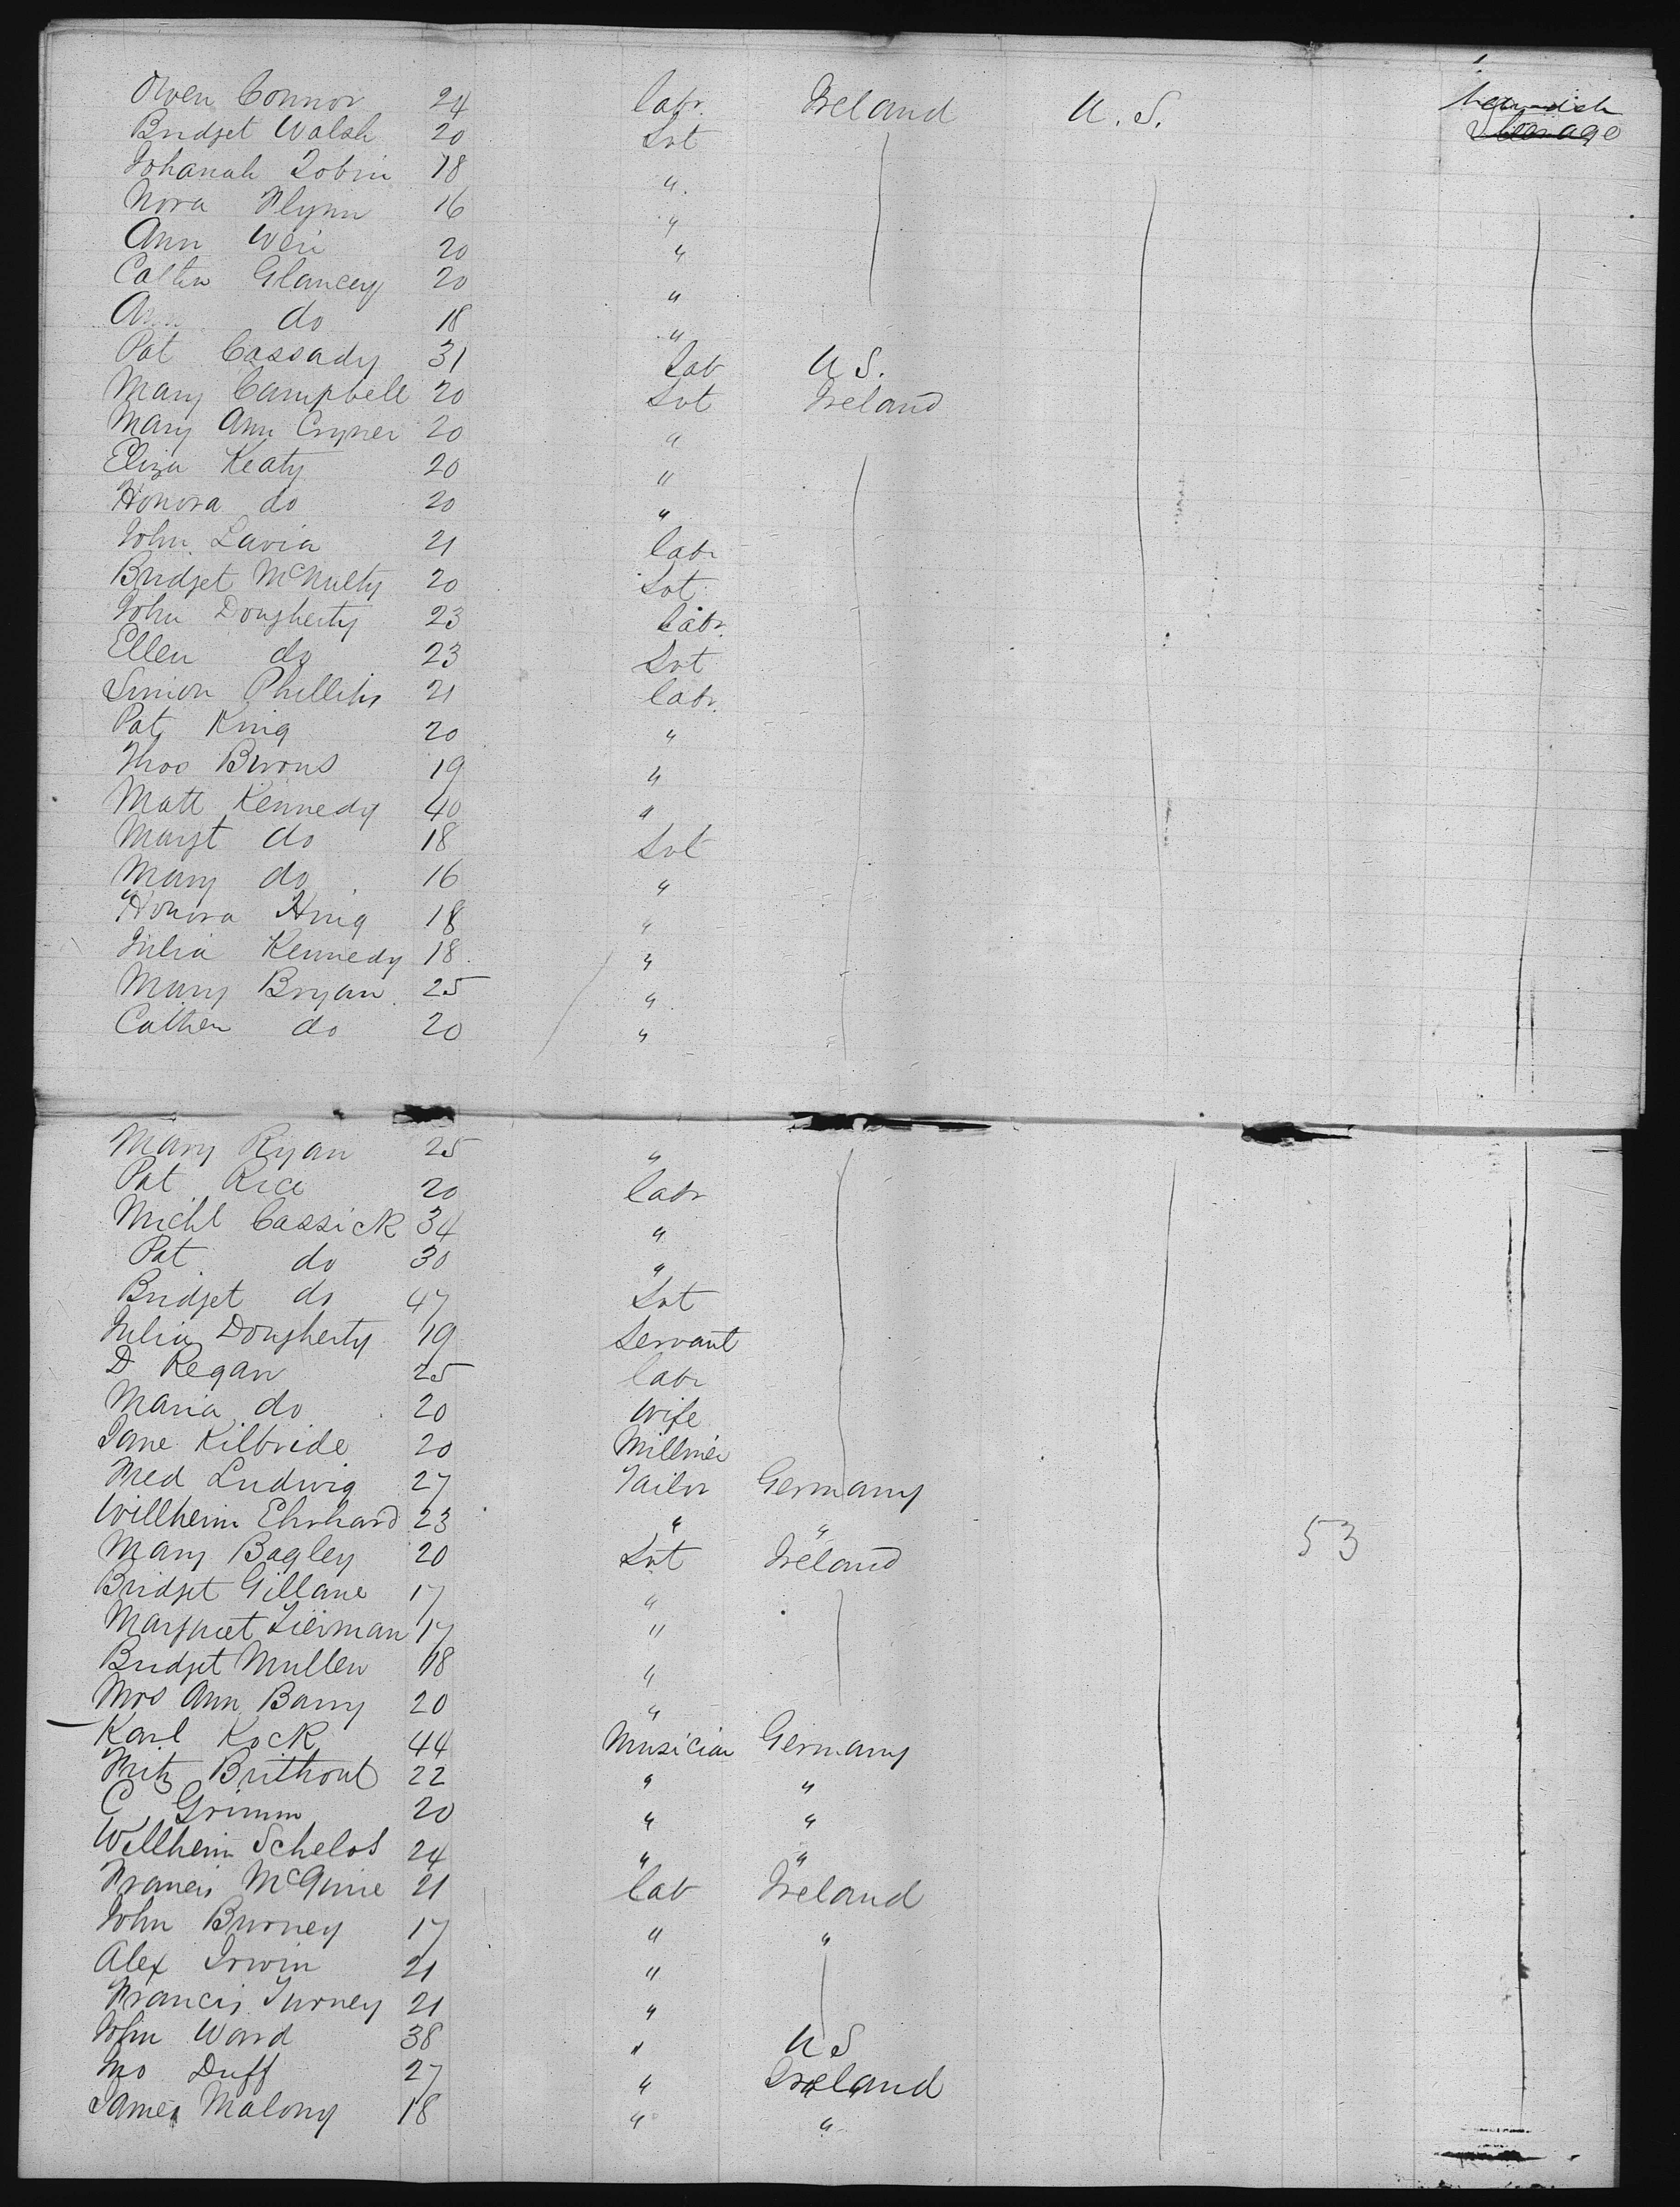 Owen Connor 24 labr. Ireland U.S.
Bridget Walsh 20 Svt Steerage
Johanah Tobin 18 "
Nora Flynn 16 "
Ann Weir 20 "
Cathn Glancey 20 "
Ann do 18 "
Pat Cassady 31 Lab U S.
Mary Campbell 20 Svt Ireland
Mary Ann 20 "
Eliza Keaty 20 "
Honora do 20 "
John Lavia 21 labr
Bridget McNulty 20 Svt
John Dougherty 23 labr.
Ellen do 23 Svt
Simon Phillips 21 labr.
Pat King 20 "
Thos 19 "
Matt Kennedy 40 "
Margt do 18 Svt
Mary do 16 "
Honora King 18 "
Julia Kennedy 18. "
Mary Bryan 25 "
Cathen do 20 "
Mary Ryan 25 "
Pat Rice 20 labr
Michl Cassick 34 "
Pat do 30 "
Bridget do 47 Svt
Julia Dougherty 19 Servant
D Regan 25 labr
Maria do 20 Wife
Jane Kilbride 20 Milliner
Fred Ludwig 27 Tailor Germany
Willheim Ehrhard 23 " " 53
Mary Bagley 20 Svt Ireland
Bridget Gillane 17 "
Margret Tierman 17 "
Bridget Mullen 18 "
Mrs Ann Barry 20 "
Karl Kock 44 Musician Germany
Fritz Brithout 22 " "
C Grimm 20 " "
Willheim Schelos 24 " "
Francis McGuire 21 lab Ireland
John Burney 17 " "
Alex Irwin 21 "
Francis Turney 21 "
John Ward 38 " U S
Duff 27 " Ireland
James Malony 18 " "